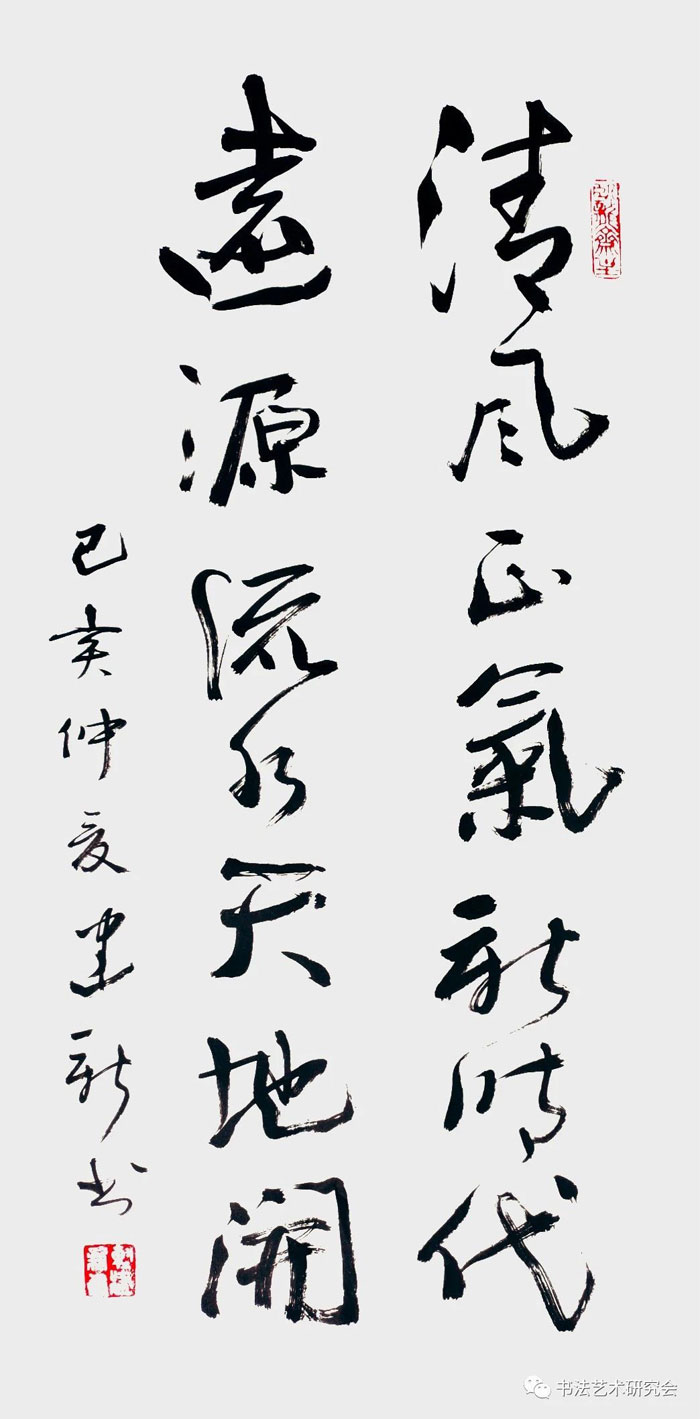 清风正氣新时代
遠源流水天地開
己亥仲夏建新书
书法艺术研究会